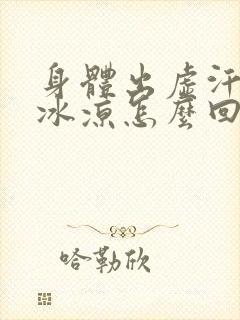 身體出虛汗
冰涼怎麼回
哈勒欣